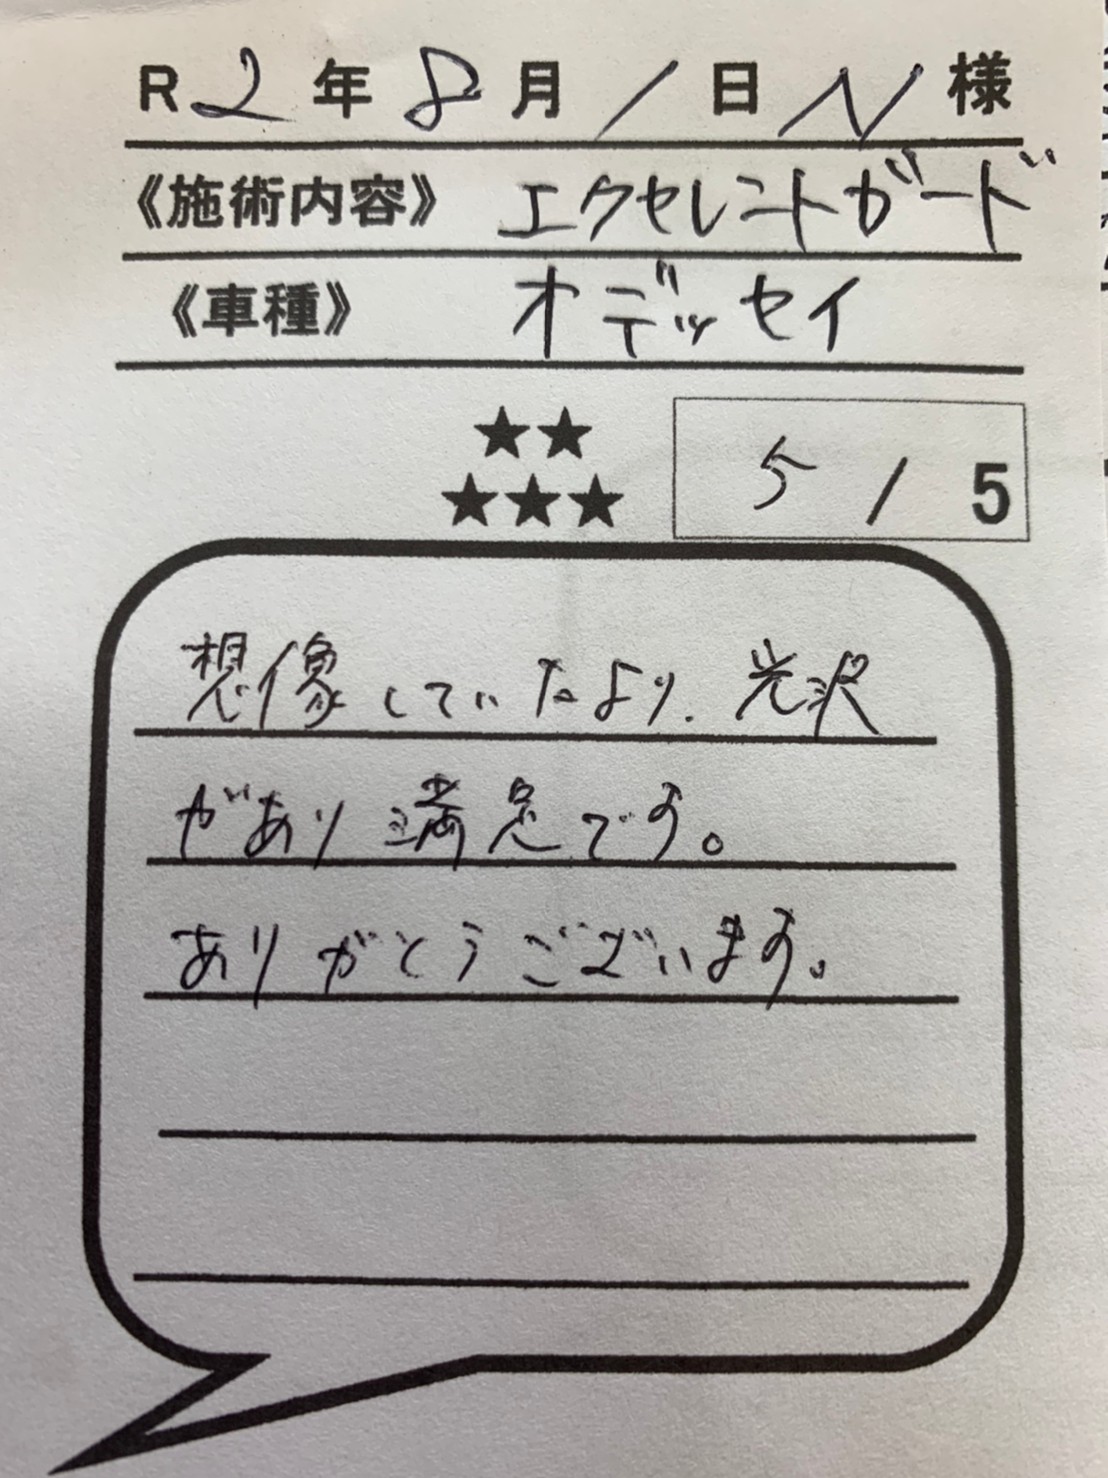 R2年8月1日N様
《施術内容》 エクセレントガード
《車種》 オデッセイ
★★
★★★
5/5
想像していたより、光沢
があり満足です。
ありがとうございます。